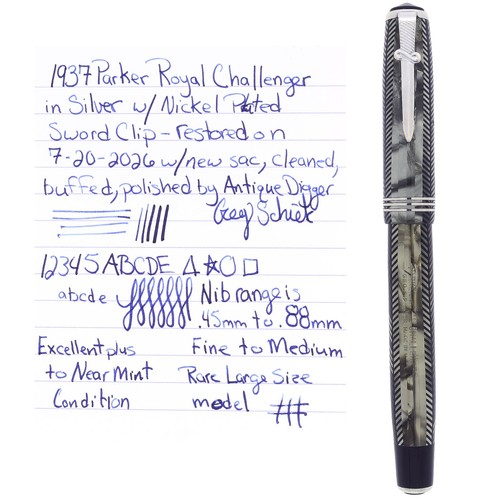 1937 Parker Royal Challenger
in Silver w/ Nickel Plated
Sword Clip - restored on
7-20-2026 w/new sac, cleaned,
buffed, polished by Antique Digger
Greg Schiek
12345 ABCDE
abcde
Nib range is
.45mm to .88mm
Excellent plus
to Near Mint
Condition
Fine to Medium
Rare Large Size
model